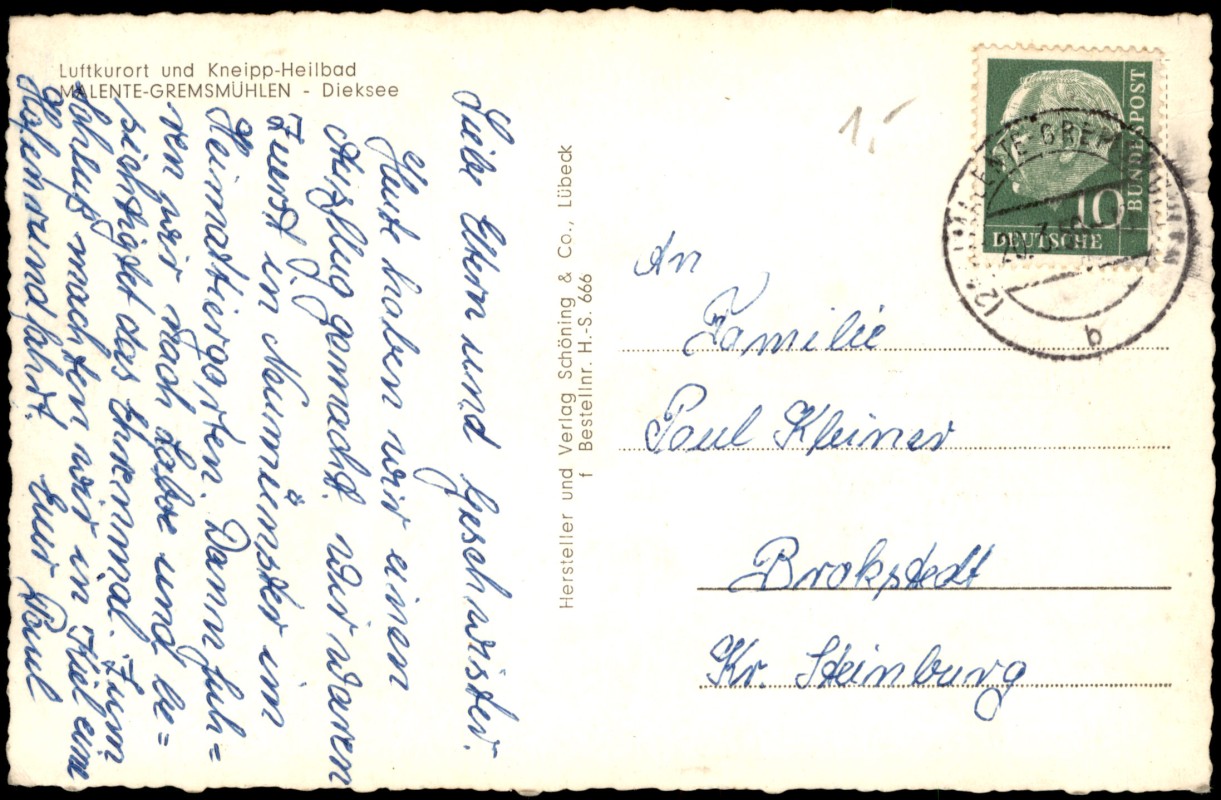 Luftkurort und Kneipp-Heilbad
MALENTE-GREMSMÜHLEN - Dieksee
Liebe Eltern und Geschwister.
Heute haben wir einen
Ausflug gemacht. Wir waren
Zuerst in Neumünster im
Heimattiergarten. Dann fuh=
ren wir nach Laboe und be=
sichtigdet das Ehrenmal. Zum
Schluß machten wir in Kiel eine
Hafenrundfahrt.
Euer Paul
Hersteller und Verlag Schöning & Co., Lübeck
f Bestellnr. H.-S. 666
1,-
DEUTSCHE
BUNDESPOST
10
b
An
Familie
Paul Kleiner
Brokstedt
Kr. Steinburg